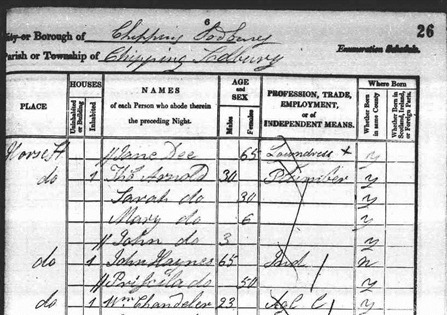 6
City or Borough of Chipping Sodbury
26
Parish or Township of Chipping Sodbury
Enumeration Schedule.
PLACE
HOUSES
Uninhabited or Building
Inhabited
NAMES of each Person who abode therein the preceding Night.
AGE and SEX
Males
Females
PROFESSION, TRADE, EMPLOYMENT, or of INDEPENDENT MEANS.
Where Born
Whether Born in same County
Whether Born in Scotland, Ireland, or Foreign Parts.
Horse St // Jane Dee 65 Laundress + y
do 1 Thos Arnold 30 Plumber y
Sarah do 30 y
Mary do 6 y
// John do 3 y
do 1 John Haines 65 Ind / N
// Priscila do 50 y
do 1 Wm Chandeler 23 Ag L / y